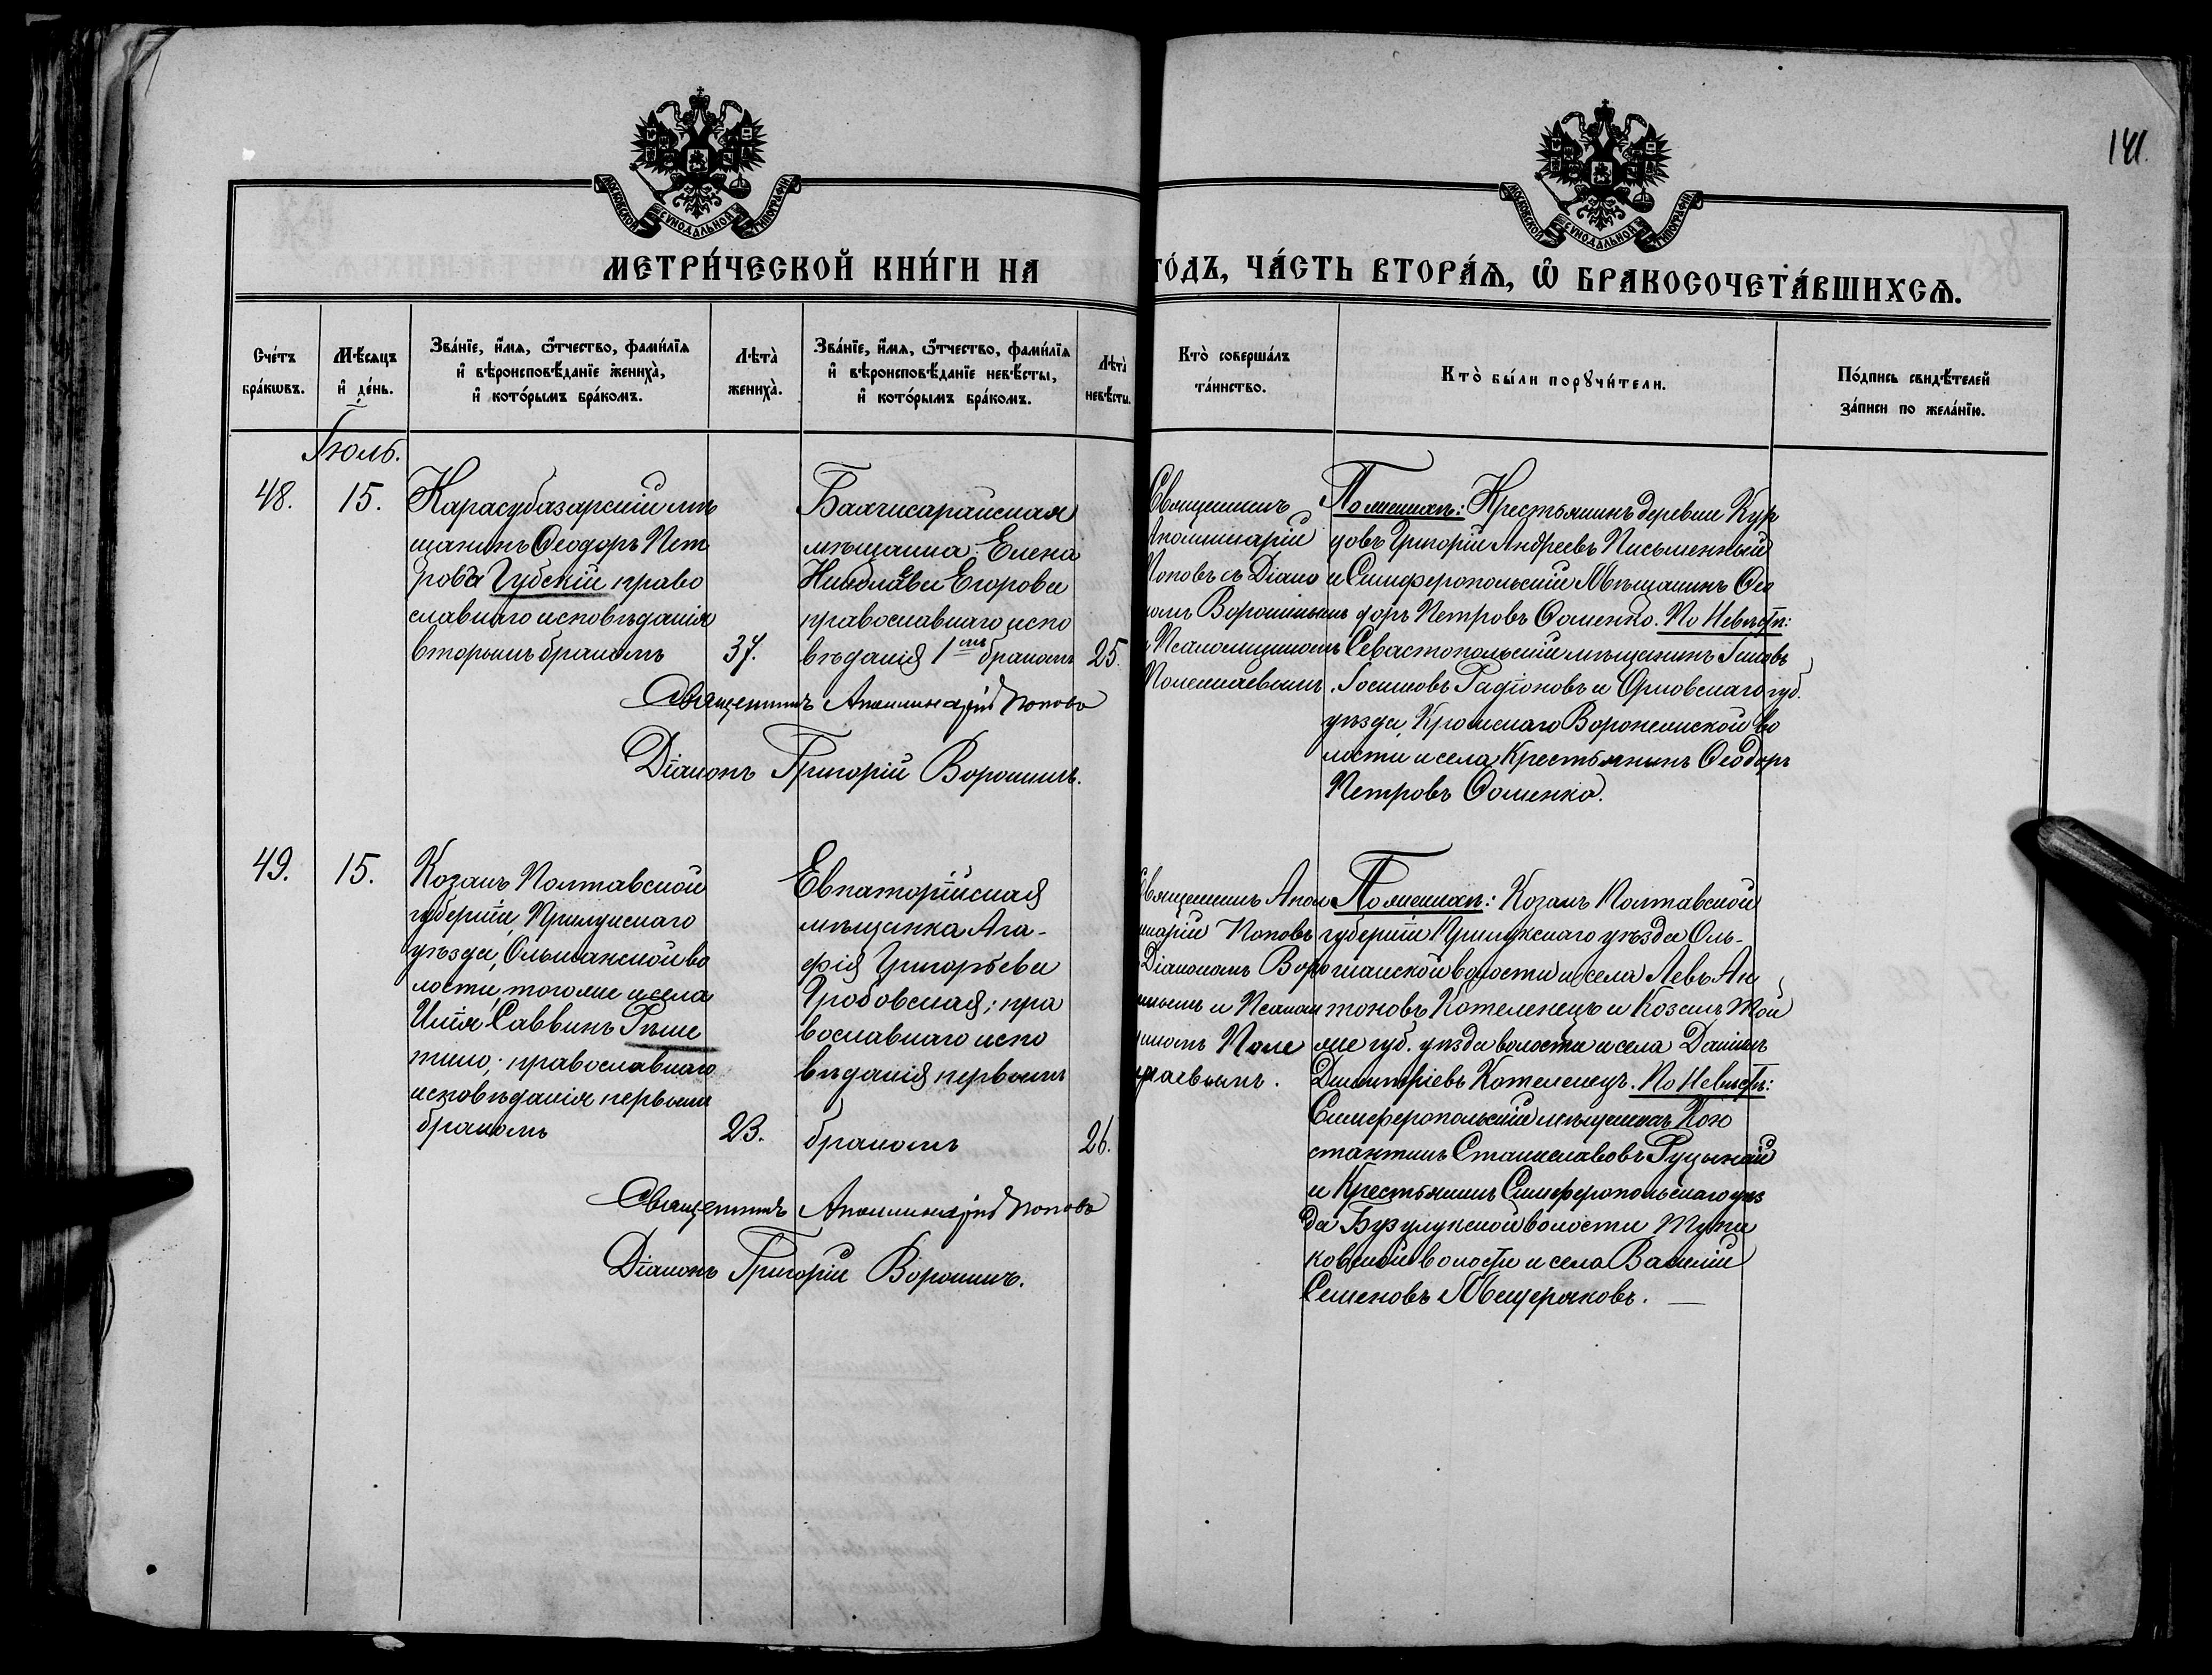 141.
МОСКОВСКОЙ СѴНОДАЛЬНОЙ ТИПОГРАФІИ
МОСКОВСКОЙ СѴНОДАЛЬНОЙ ТИПОГРАФІИ
МЕТРИ́ЧЕСКОЙ КНИ́ГИ НА
ГО́ДЪ, ЧА́СТЬ ВТОРА́Ѧ, Ѽ БРАКОСОЧЕТА́ВШИХСѦ.
Сче́тъ
бра́кѡвъ.
Мѣ́сѧцъ
и҆ де́нь.
Зва́нїе, и҆́мѧ, ѻ҆́тчество, фами́лїѧ
и҆ вѣроисповѣ́данїе жениха̀,
и҆ кото́рымъ бра́комъ.
Лѣта̀
жениха̀.
Зва́нїе, и҆́мѧ, ѻ҆́тчество, фами́лїѧ
и҆ вѣроисповѣ́данїе невѣ́сты,
и҆ кото́рымъ бра́комъ.
Лѣта̀
невѣ́сты.
Кто̀ соверша́лъ
та́инство.
Кто̀ бы́ли порꙋчи́тели.
По́дпись свидѣ́телей
за́писи по жела́нїю.
Іюль.
48.
15.
Карасубазарскій мѣ
щанинъ Ѳеодоръ Пет
ровъ Губскій право
славнаго исповѣданія
вторымъ бракомъ
37.
Бахчисарайская
мѣщанка Елена
Николаева Егорова
православнаго испо
вѣданія 1мъ бракомъ
25.
Священникъ
Аполлинарій
Поповъ съ Діако
номъ Ворошинымъ
и Псаломщикомъ
Полешаевымъ.
По женихѣ: Крестьянинъ деревни Кур
цовъ Григорій Андреевъ Письменный
и Симферопольскій Мѣщанинъ Ѳео
доръ Петровъ Ѳоменко. По Невѣстѣ:
Севастопольскій мѣщанинъ
Іосифовъ Радіоновъ и Орловскаго губ.
уѣзда, Кромскаго Воронежской во
лости и села, Крестьянинъ Ѳеодоръ
Петровъ Ѳоменко.
Священникъ Аполлинарій Поповъ
Діаконъ Григорій Ворошинъ.
49.
15.
Козакъ Полтавской
губерніи, Прилукскаго
уѣзда, Ольшанской во
лости, того же и села
Илія Саввинъ Рѣше
тило; православнаго
исповѣданія первымъ
бракомъ
23.
Евпаторійская
мѣщанка Ага-
фія Григорьева
Гробовская; пра
вославнаго испо
вѣданія первымъ
бракомъ
26.
Священникъ Апол
линарій Поповъ
Діакономъ Воро
шинымъ и Псалом
щикомъ Поле
шаевымъ.
По женихѣ: Козакъ Полтавской
губерніи Прилукскаго уѣзда Оль-
шанской волости и села Левъ Ан
тоновъ Котеленецъ и Козакъ той
же губ. уѣзда волости и села Даніилъ
Димитріевъ Котеленецъ. По Невѣстѣ:
Симферопольскій мѣщанинъ Кон
стантинъ Станиславовъ
и Крестьянинъ Симферопольскаго уѣз
да Бузулукской волости
ковской волости и села Василій
Семеновъ Мещеряковъ.
Священникъ Аполлинарій Поповъ
Діаконъ Григорій Ворошинъ.